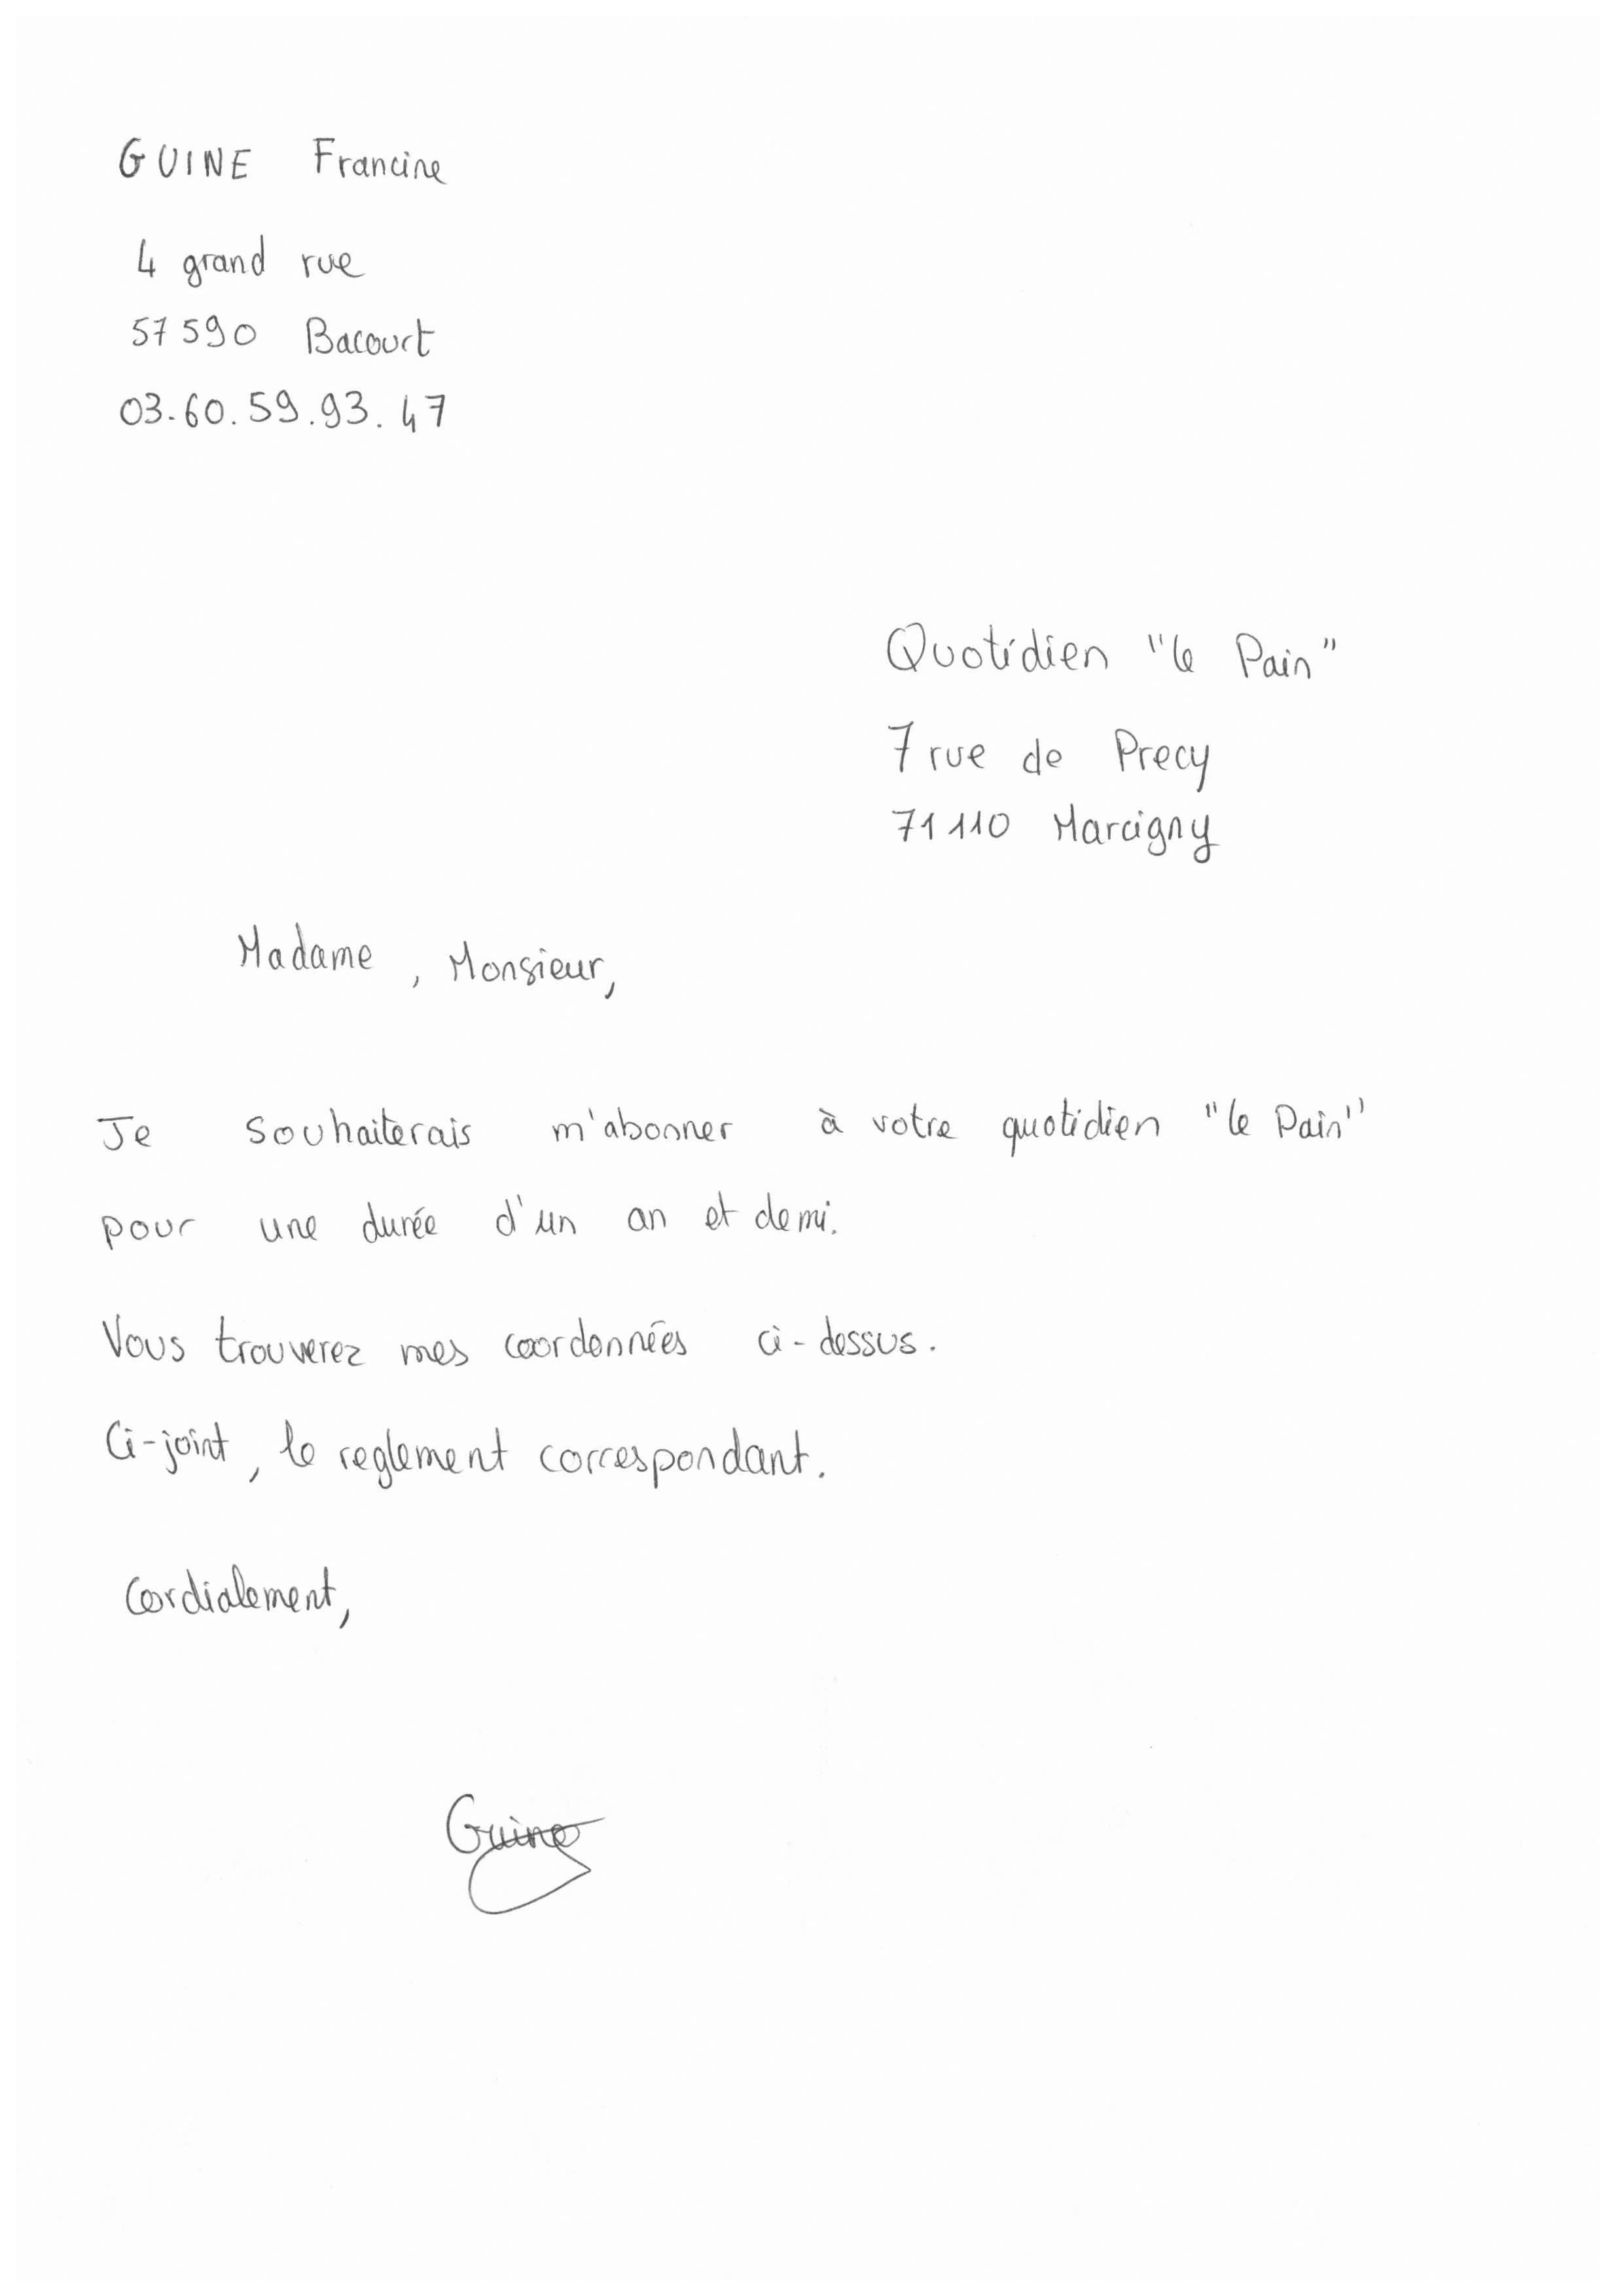 GUINE Francine
4 grand rue
57590 Bacourt
03.60.59.93.47
Quotidien "le Pain"
7 rue de Precy
71110 Marcigny
Madame, Monsieur,
Je souhaiterais m'abonner à votre quotidien "le Pain"
pour une durée d'un an et demi.
Vous trouverez mes coordonnées ci-dessus.
Ci-joint, le reglement correspondant.
Cordialement,
Guine